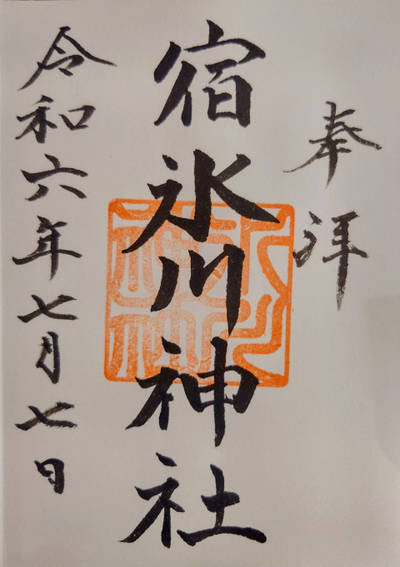 奉拝
宿氷川神社
令和六年七月七日